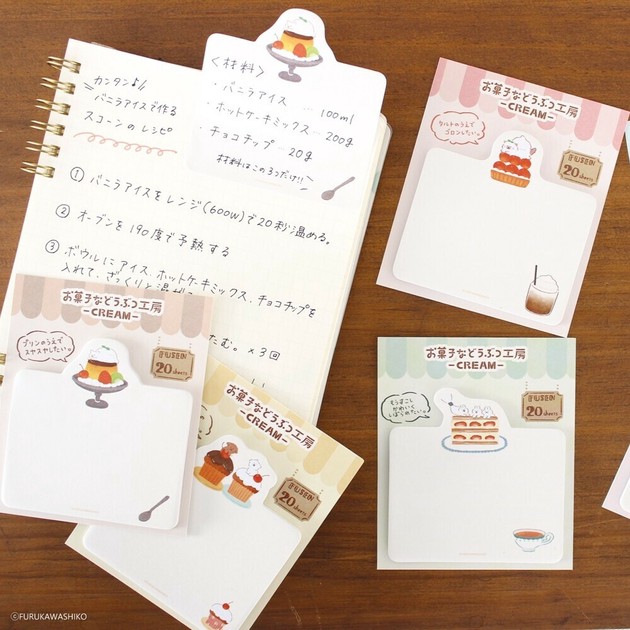 カンタン♪
バニラアイスで作る
スコーンのレシピ
<材料>
・バニラアイス … 100ml
・ホットケーキミックス … 200g
・チョコチップ … 20g
材料はこの3つだけ!!
① バニラアイスをレンジ(600W)で20秒温める。
② オーブンを190度で予熱する
③ ボウルにアイス、ホットケーキミックス、チョコチップを
入れて、ざっくりと混ぜ
たむ。×3回
お菓子などうぶつ工房
-CREAM-
タルトのうえで
ゴロンしたい。
FUSEN
20 sheets
お菓子などうぶつ工房
-CREAM-
プリンのうえで
スヤスヤしたい。
FUSEN
20 sheets
お菓子などうぶつ工房
-CREAM-
FUSEN
20 sheets
お菓子などうぶつ工房
-CREAM-
もうすこし
かわいく
しぼられたい。
FUSEN
20 sheets
©FURUKAWASHIKO